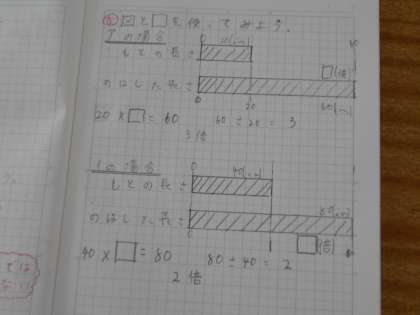 図と□を使ってみよう。
アの場合
もとの長さ
0
□(倍)
のばした長さ
0 20 60(cm)
20 × □ = 60 60 ÷ 20 = 3
3倍
イの場合
もとの長さ
0 40(cm)
のばした長さ
80(cm)
□(倍)
40 × □ = 80 80 ÷ 40 = 2
2倍